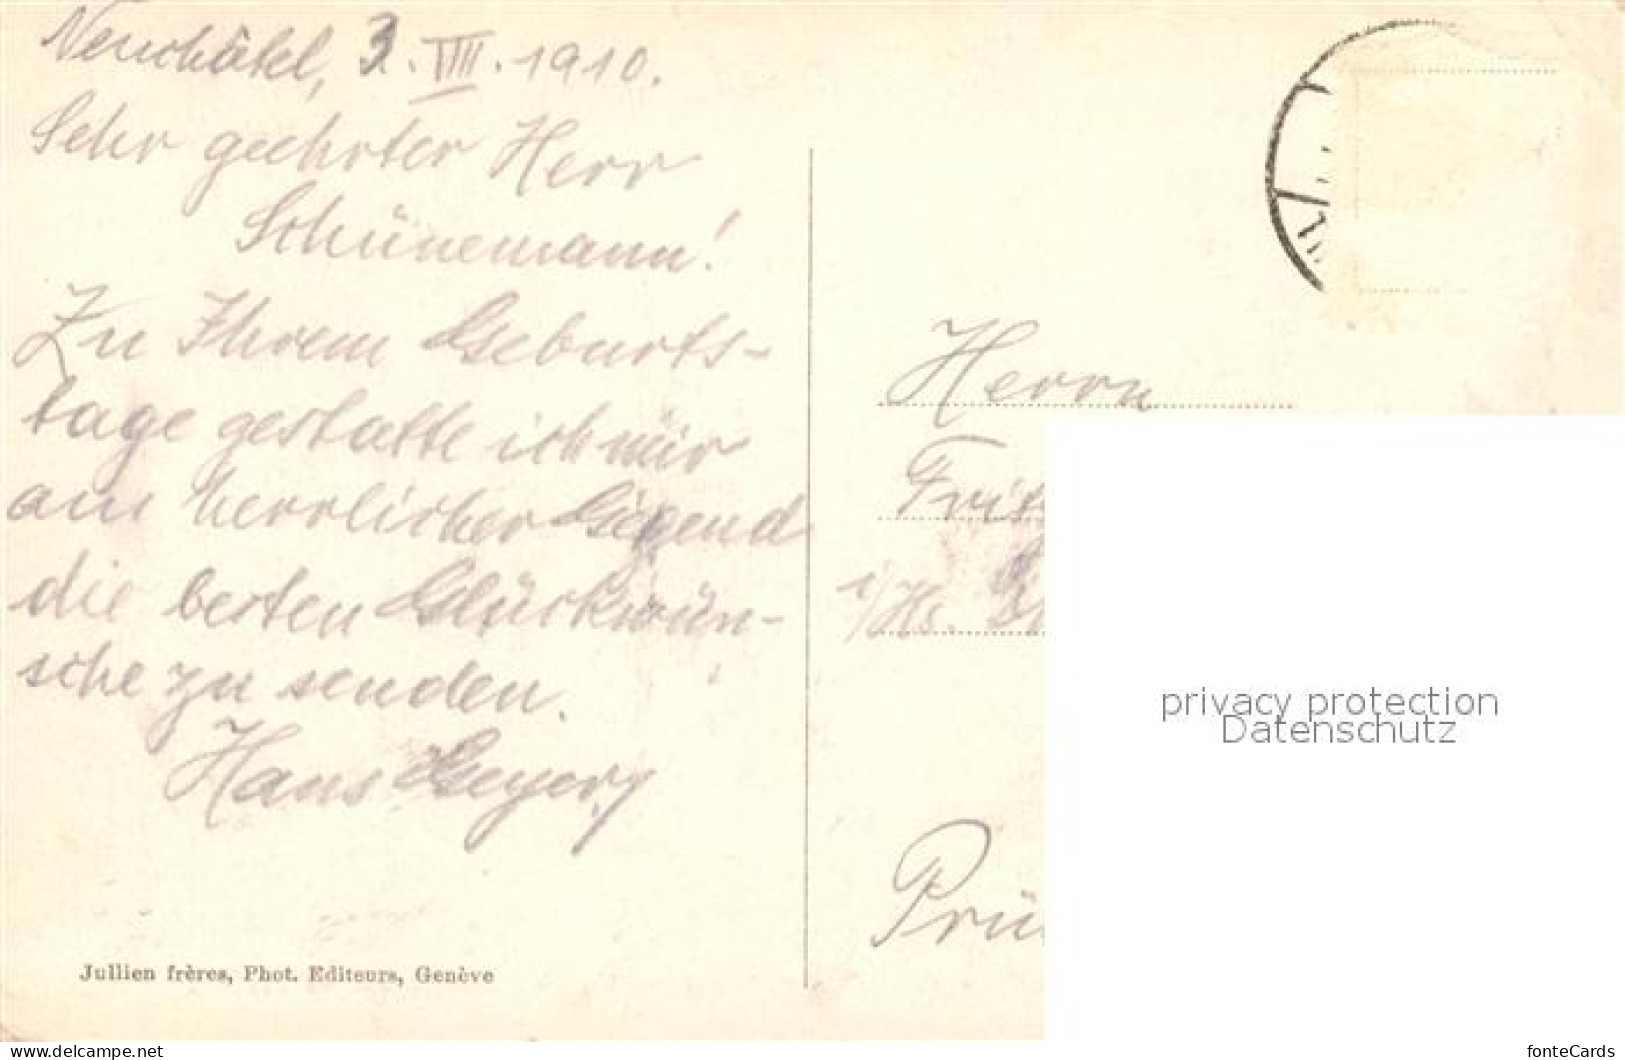 Neuchâtel, 3. VIII. 1910.
Sehr geehrter Herr
Schünemann!
Zu Ihrem Geburts-
tage gestatte ich mir
aus herrlicher Gegend
die besten Glückwün-
sche zu senden.
Hans Geyer
Jullien frères, Phot. Editeurs, Genève
Herrn
i/Hs.
Prü
privacy protection
Datenschutz
www.delcampe.net
fonteCards